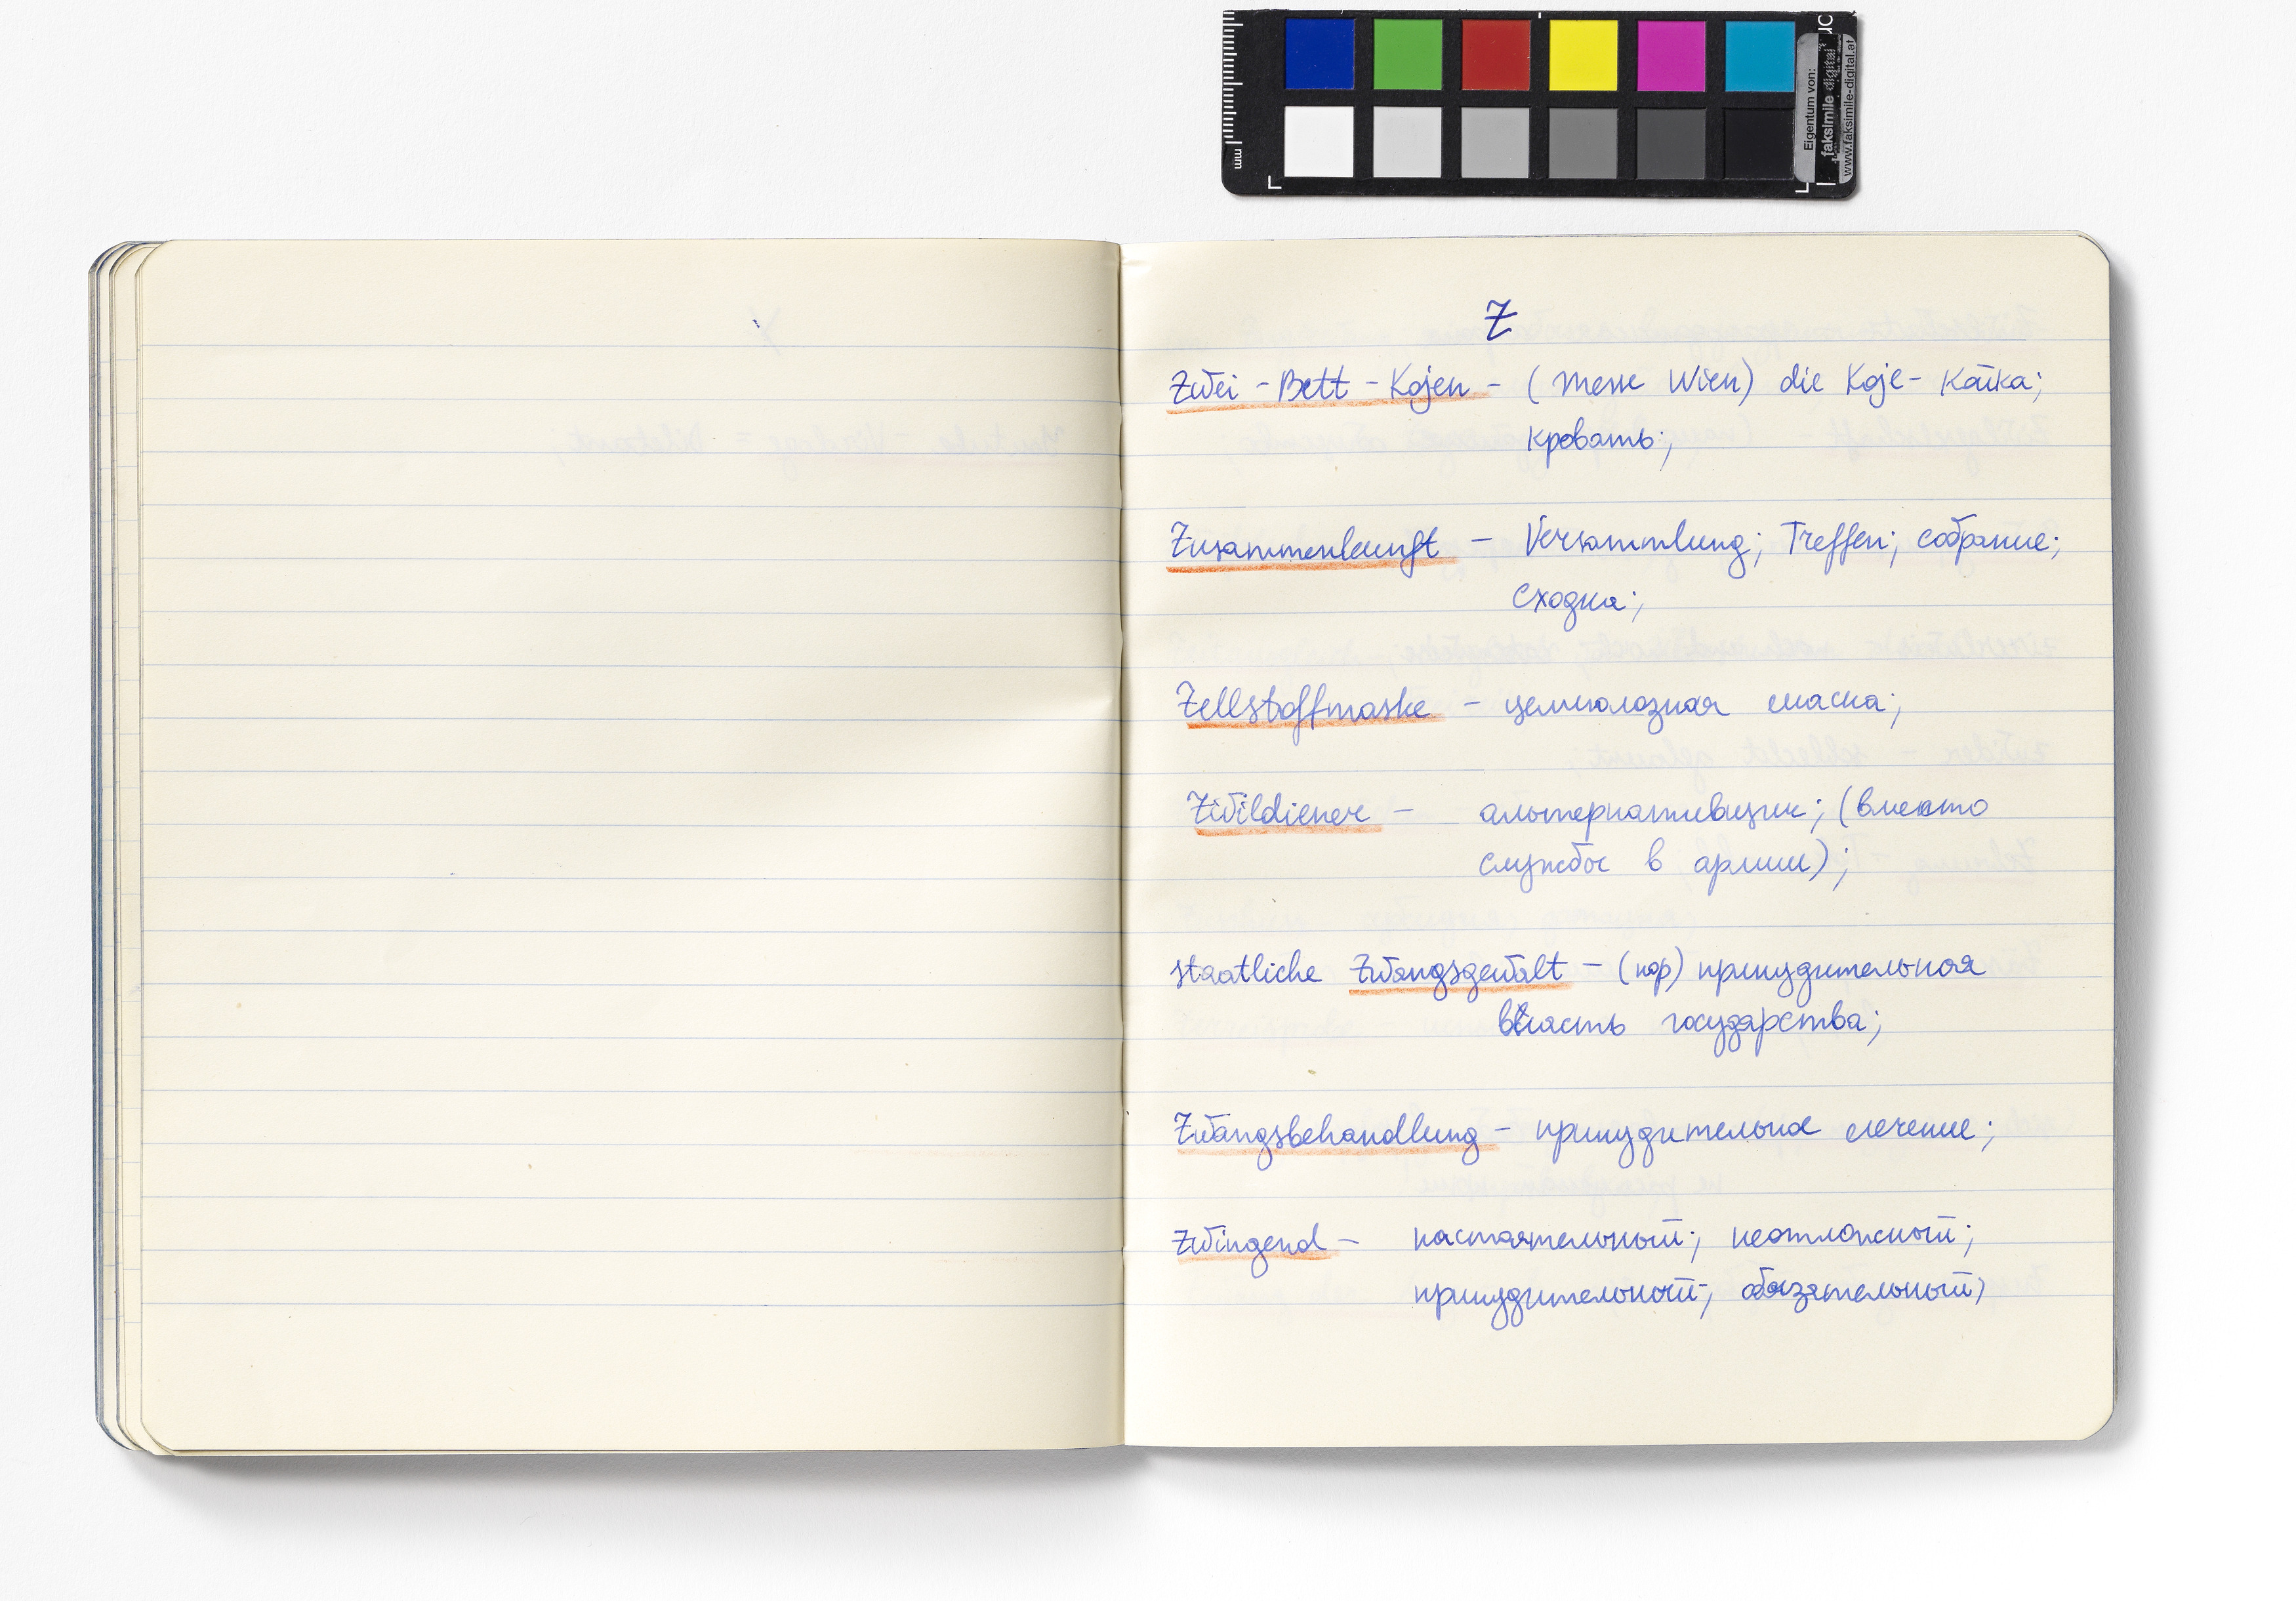 mm
Eigentum von:
faksimile digital
www.faksimile-digital.at
Z
Zwei-Bett-Kojen - (Messe Wien) die Koje - Койка;
кровать;
Zusammenkunft - Versammlung; Treffen; собрание;
Сходка;
Zellstoffmaske - целлюлозная маска;
Zivildiener - альтернативщик; (вместо
службы в армии);
staatliche Zwangsgewalt - (юр) принудительная
власть государства;
Zwangsbehandlung - принудительное лечение;
Zwingend - настоятельный; неотложный;
принудительный; обязательный;